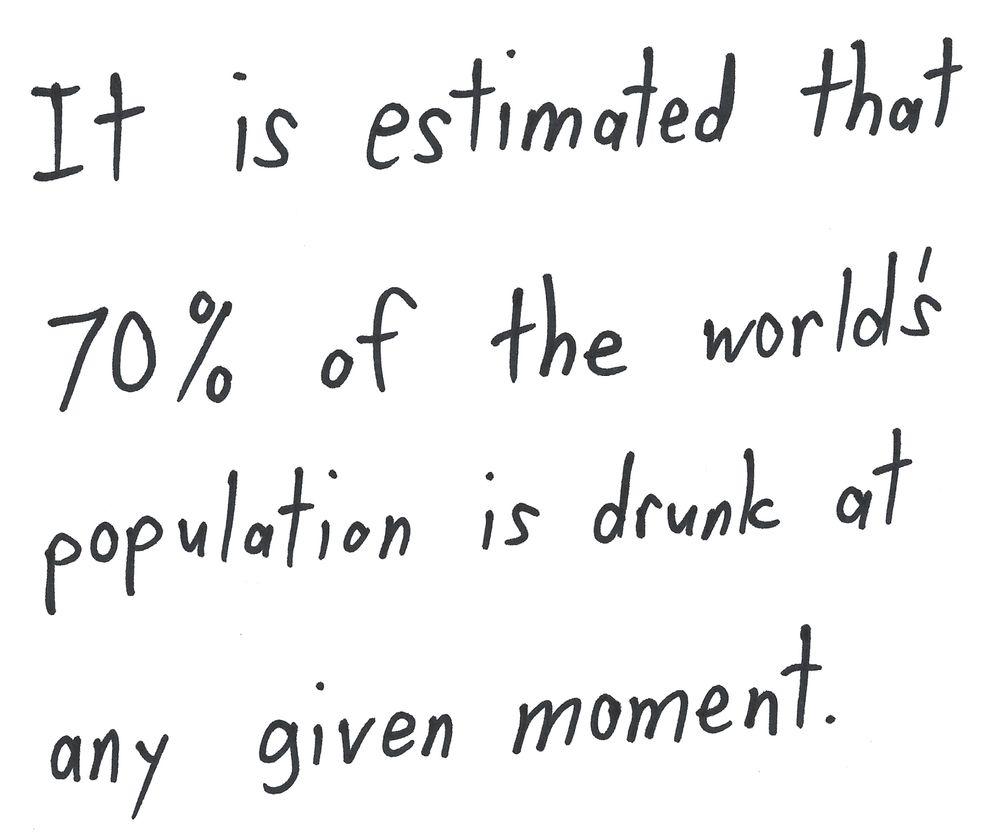 It is estimated that
70% of the world's
population is drunk at
any given moment.